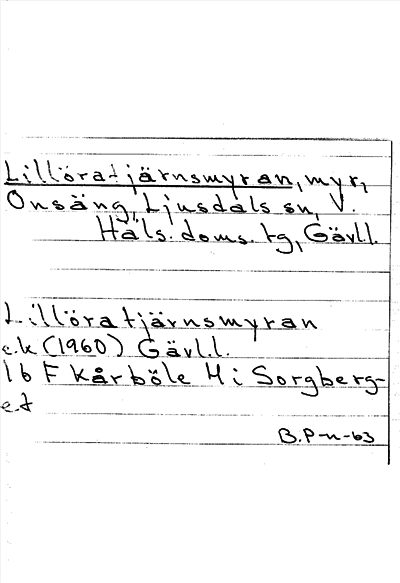 Lillöratjärnsmyran, myr,
Onsäng, Ljusdals sn, V.
Häls. doms. tg, Gävl.l.
Lillöratjärnsmyran
e.k (1960) Gävl.l.
16 F Kårböle
i Sorgberg-
et
B.P-n-63